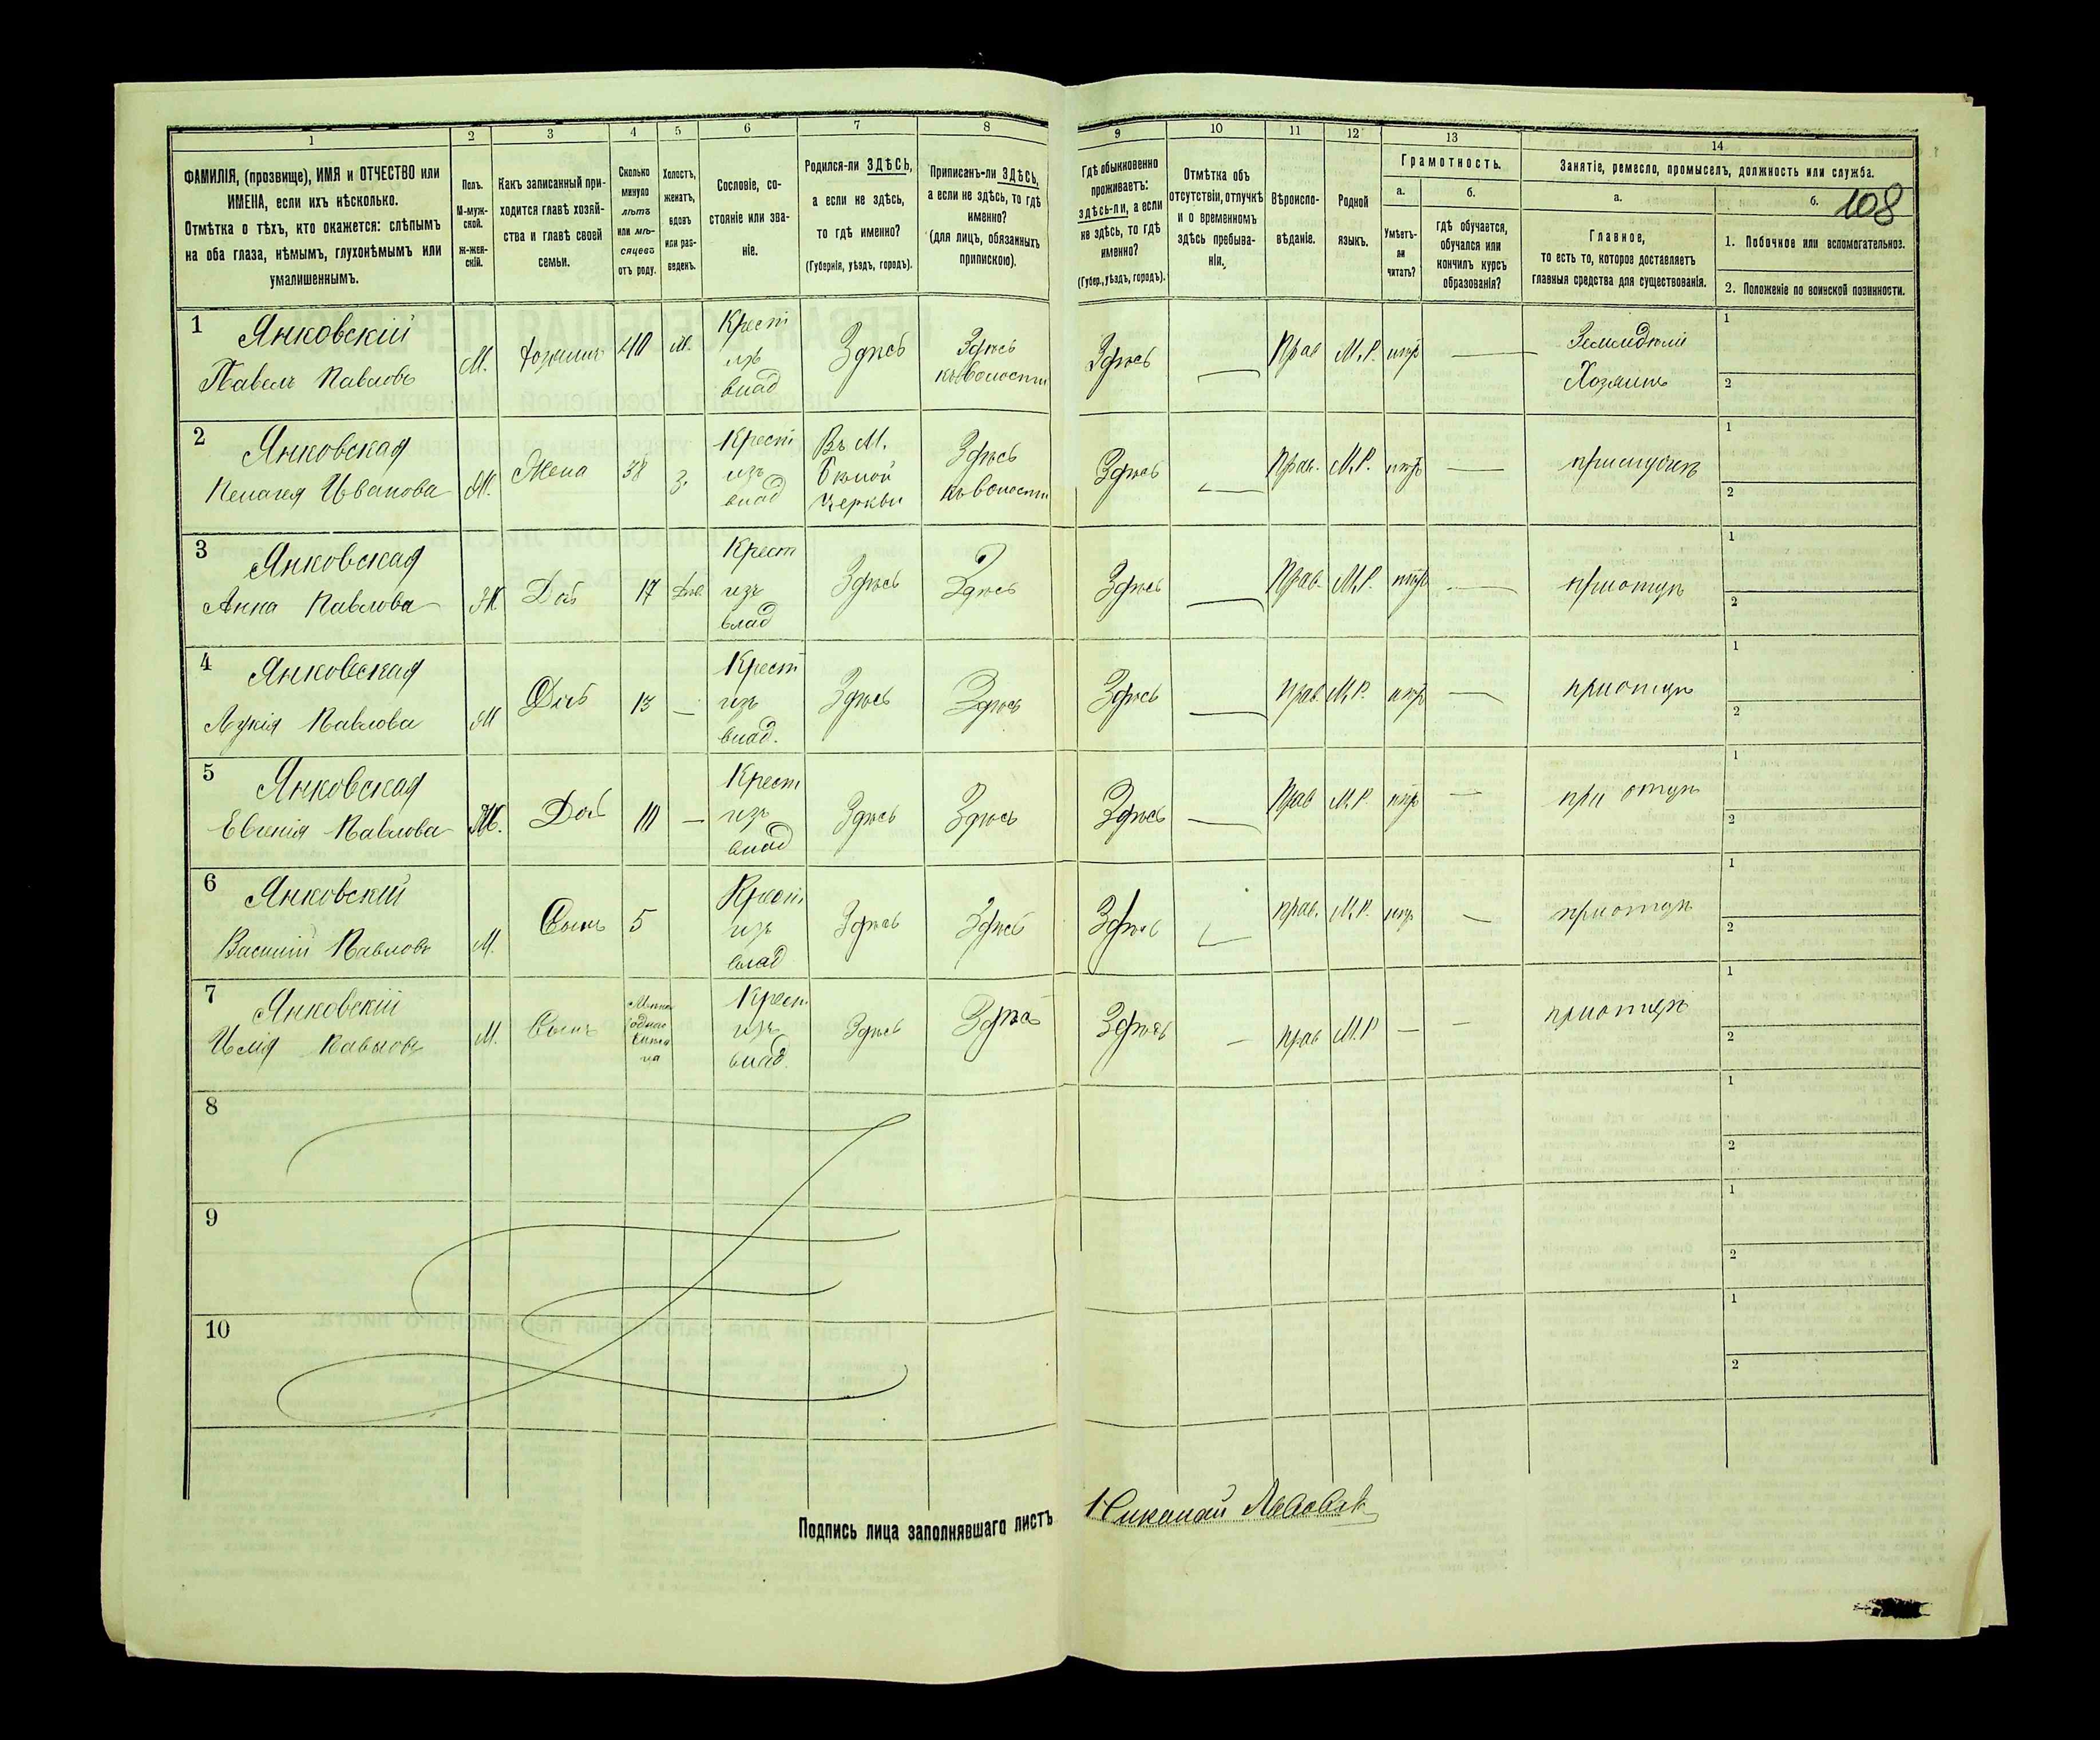 108
1 2 3 4 5 6 7 8 9 10 11 12 13 14
ФАМИЛІЯ, (прозвище), ИМЯ и ОТЧЕСТВО или
ИМЕНА, если ихъ нѣсколько.
Отмѣтка о тѣхъ, кто окажется: слѣпымъ
на оба глаза, нѣмымъ, глухонѣмымъ или
умалишеннымъ.
Полъ.
М-муж-
ской.
ж-жен-
скій.
Какъ записанный при-
ходится главѣ хозяй-
ства и главѣ своей
семьи.
Сколько
минуло
лѣтъ
или мѣ-
сяцевъ
отъ роду.
Холостъ,
женатъ,
вдовъ
или раз-
веденъ.
Сословіе, со-
стояніе или зва-
ніе.
Родился-ли ЗДѢСЬ,
а если не здѣсь,
то гдѣ именно?
(Губернія, уѣздъ, городъ).
Приписанъ-ли ЗДѢСЬ,
а если не здѣсь, то гдѣ
именно?
(для лицъ, обязанныхъ
припискою).
Гдѣ обыкновенно
проживаетъ:
здѣсь-ли, а если
не здѣсь, то гдѣ
именно?
(Губер., уѣздъ, городъ).
Отмѣтка объ
отсутствіи, отлучкѣ
и о временномъ
здѣсь пребыва-
ніи.
Вѣроиспо-
вѣданіе.
Родной
языкъ.
Грамотность.
а.
Умѣетъ-
ли
читать?
б.
гдѣ обучается,
обучался или
кончилъ курсъ
образованія?
Занятіе, ремесло, промыселъ, должность или служба.
а.
Главное,
то есть то, которое доставляетъ
главныя средства для существованія.
б.
1. Побочное или вспомогательное.
2. Положеніе по воинской повинности.
1 Янковскій
Павелъ Павловъ
М. хозяинъ 40 ж.
Крест
изъ
влад
Здѣсь
Здѣсь
къ волости
Здѣсь — Прав М.Р. —
Хозяинъ
1
2
2 Янковская
Пелагея Иванова
М. Жена 38 з.
Крест
изъ
влад
Въ М.
Бѣлой
Церкви
Здѣсь
къ волости
Здѣсь — Прав. М.Р. —
1
2
3 Янковская
Анна Павлова
Ж Доч 17 Дѣв
Крест
изъ
влад
Здѣсь Здѣсь Здѣсь — Прав. М.Р. — при отцѣ
1
2
4 Янковская
Лукія Павлова
Ж Доч 13 —
Крест
изъ
влад.
Здѣсь Здѣсь Здѣсь — Прав. М.Р. — при отцѣ
1
2
5 Янковская
Евгенія Павлова
Ж. Доч 10 —
Крест
изъ
влад
Здѣсь Здѣсь Здѣсь — Прав М.Р. — при отцѣ
1
2
6 Янковскій
Василій Павловъ
М. Сынъ 5
Крест
изъ
влад
Здѣсь Здѣсь Здѣсь — прав. М.Р. — при отцѣ
1
2
7 Янковскій
Павловъ
М. Сынъ
Крест
изъ
влад.
Здѣсь Здѣсь Здѣсь — прав М.Р — — при отцѣ
1
2
8
1
2
9
1
2
10
1
2
Подпись лица заполнявшаго листъ Николай